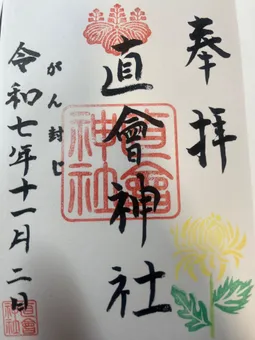 奉拝
直會神社
がん封じ
令和七年十一月二日
直會神社
直會神社